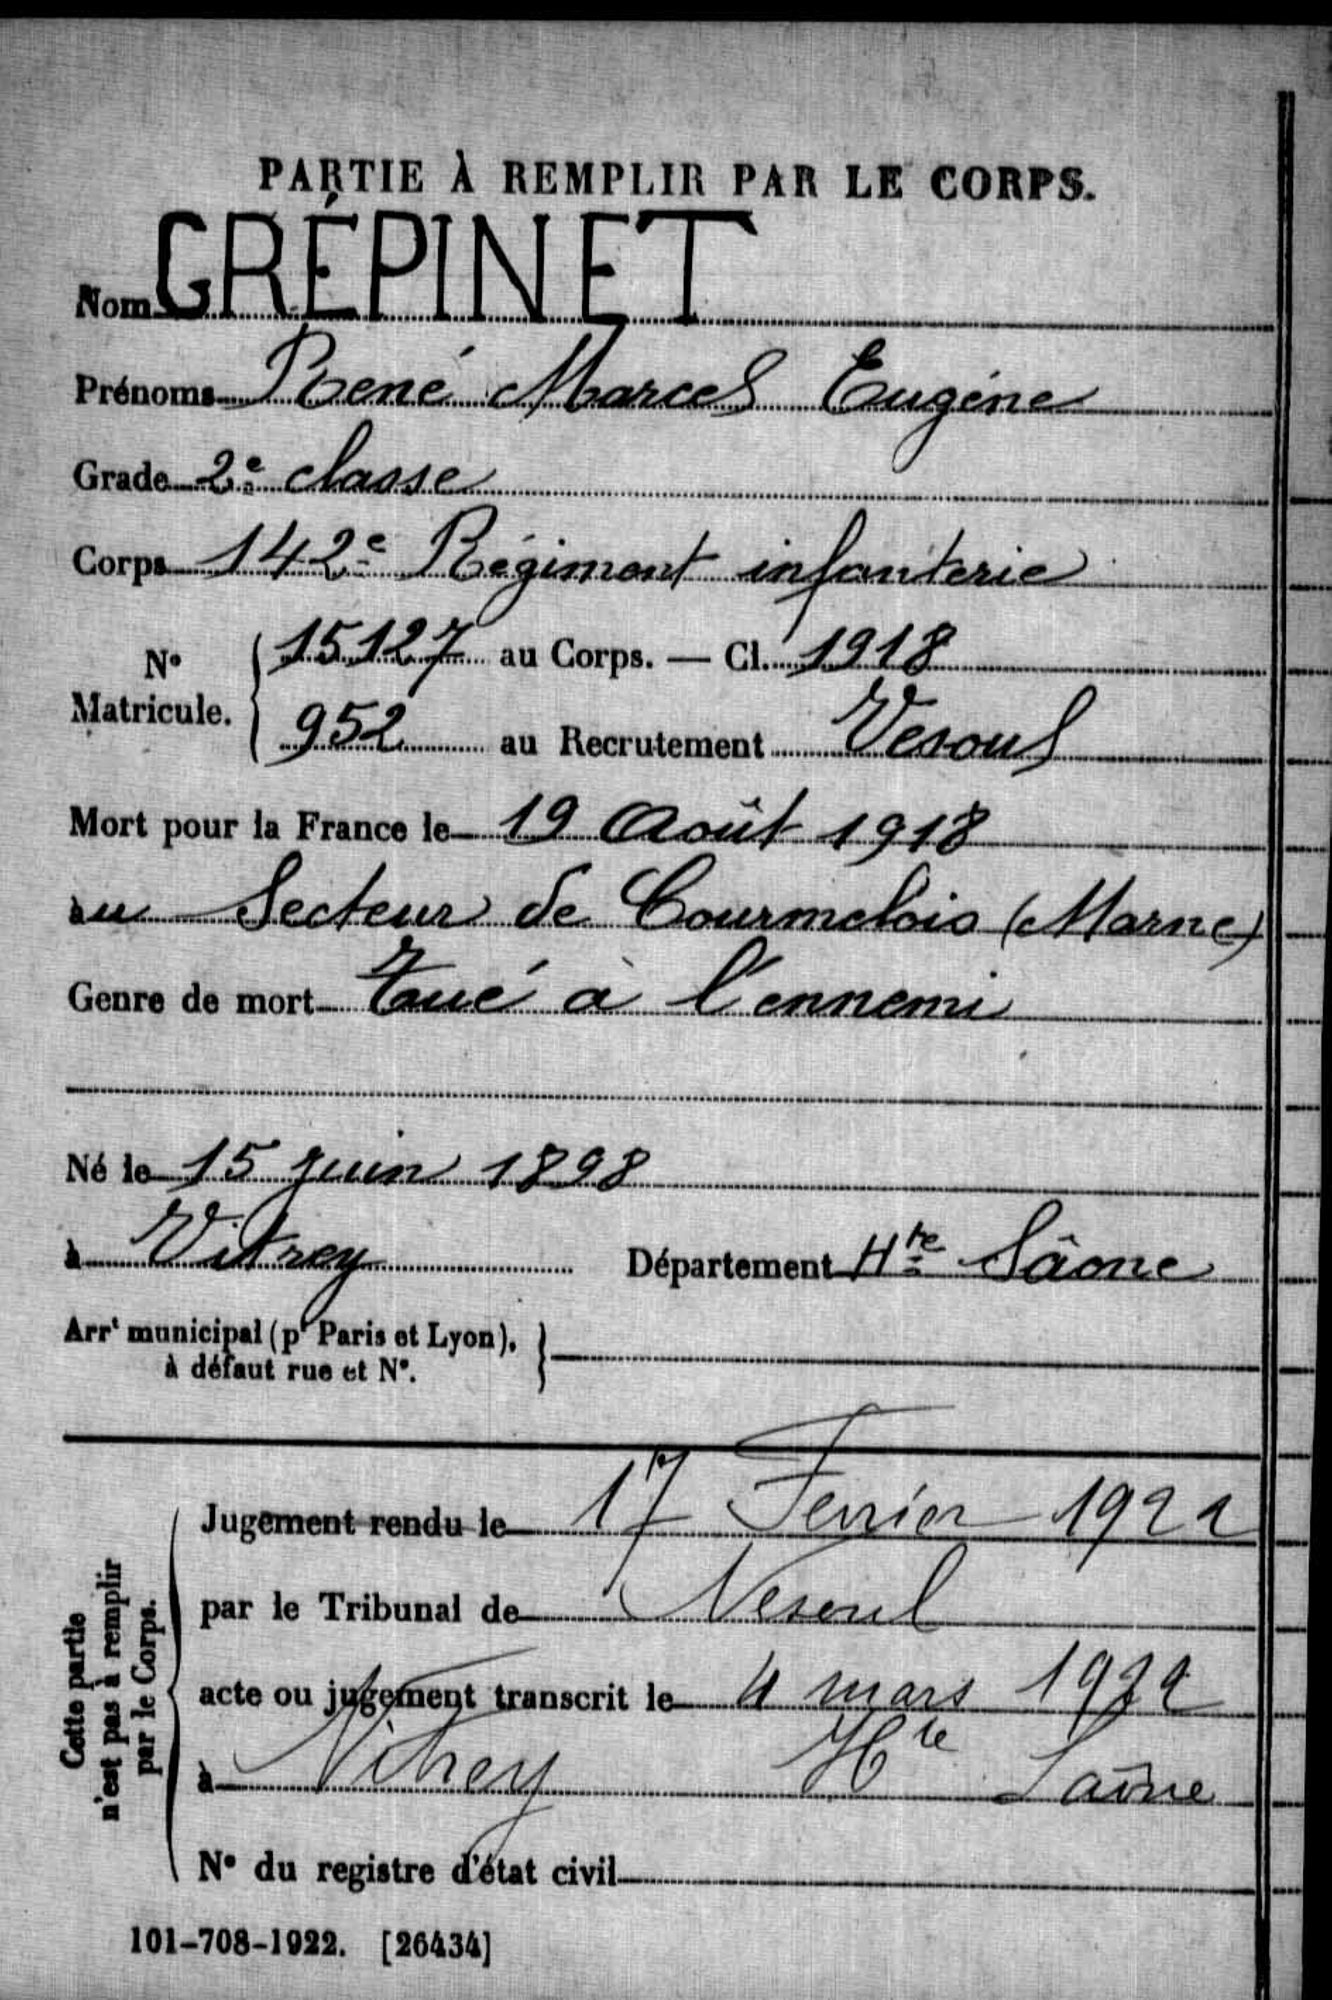 PARTIE À REMPLIR PAR LE CORPS.
Nom GRÉPINET
Prénoms René Marcel Eugène
Grade 2e classe
Corps 142e Régiment infanterie
No Matricule. { 15127 au Corps. — Cl. 1918
952 au Recrutement Vesoul
Mort pour la France le 19 Août 1918
au Secteur de Courmelois (Marne)
Genre de mort Tué à l'ennemi
Né le 15 juin 1898
à Vitrey Département Hte Sâone
Arrt municipal (pr Paris et Lyon),
à défaut rue et No.
Cette partie
n'est pas à remplir
par le Corps.
Jugement rendu le 17 Fevrier 1922
par le Tribunal de Vesoul
acte ou jugement transcrit le 4 mars 1922
à Vitrey Hte Saône
No du registre d'état civil
101-708-1922. [26434]